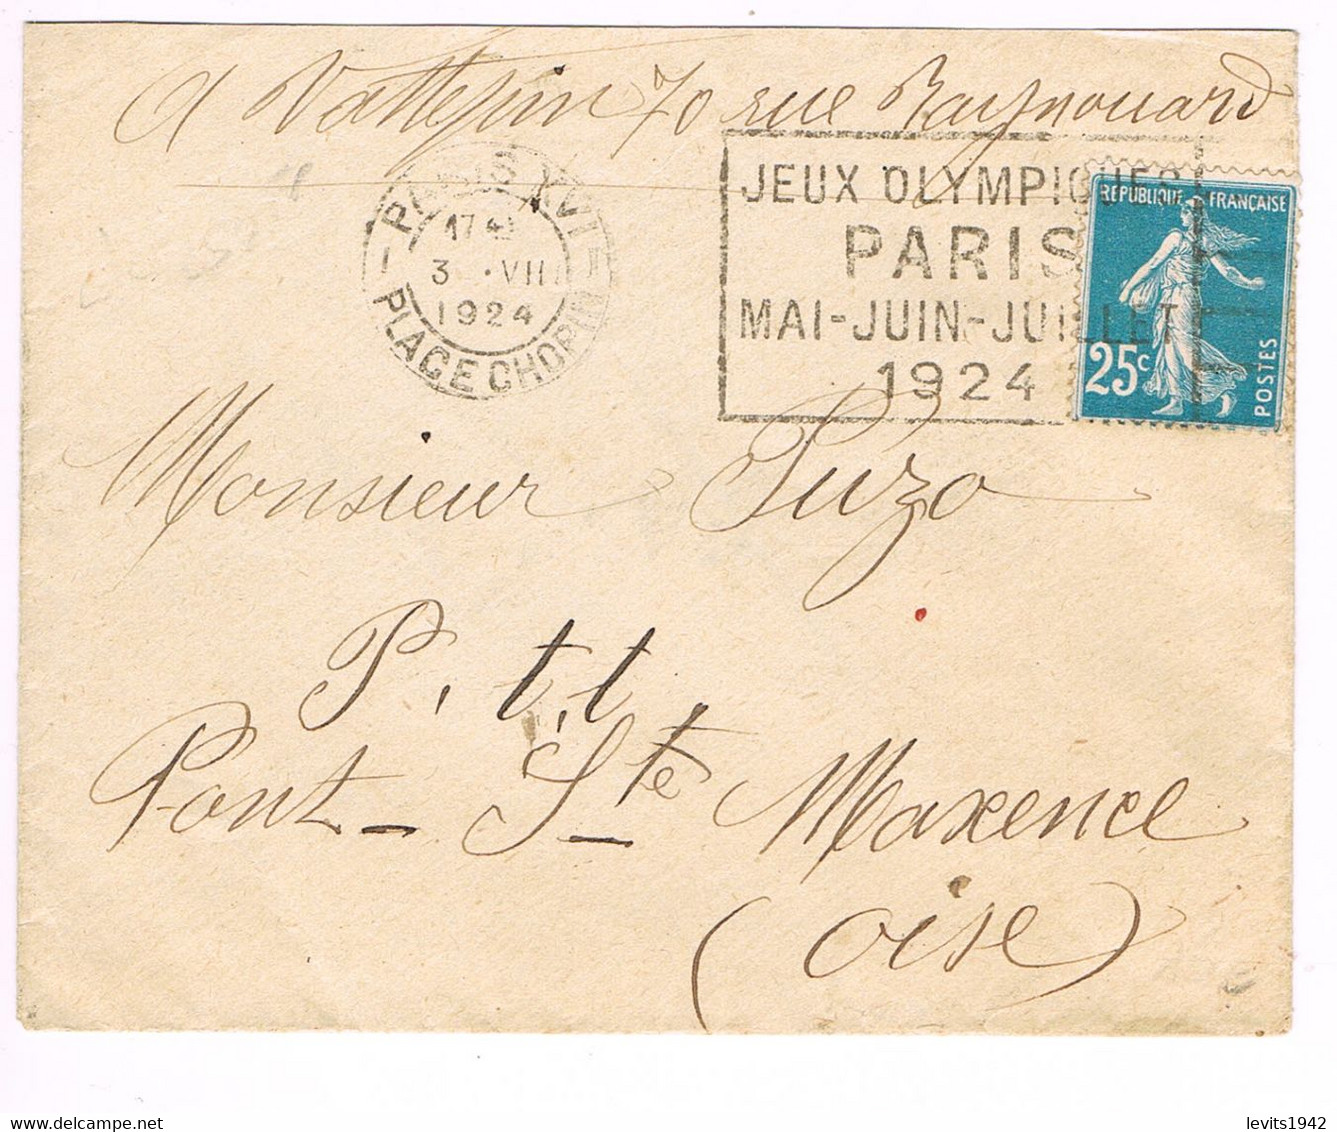 A Vattepin 70 rue Raynouard
PARIS XVI
17
3 VII
1924
PLACE CHOPIN
JEUX OLYMPIQUES
PARIS
MAI-JUIN-JUILLET
1924
REPUBLIQUE FRANÇAISE
25c
POSTES
Monsieur Suzo
P. t. t.
Pont-Ste Maxence
(Oise)
levits1942